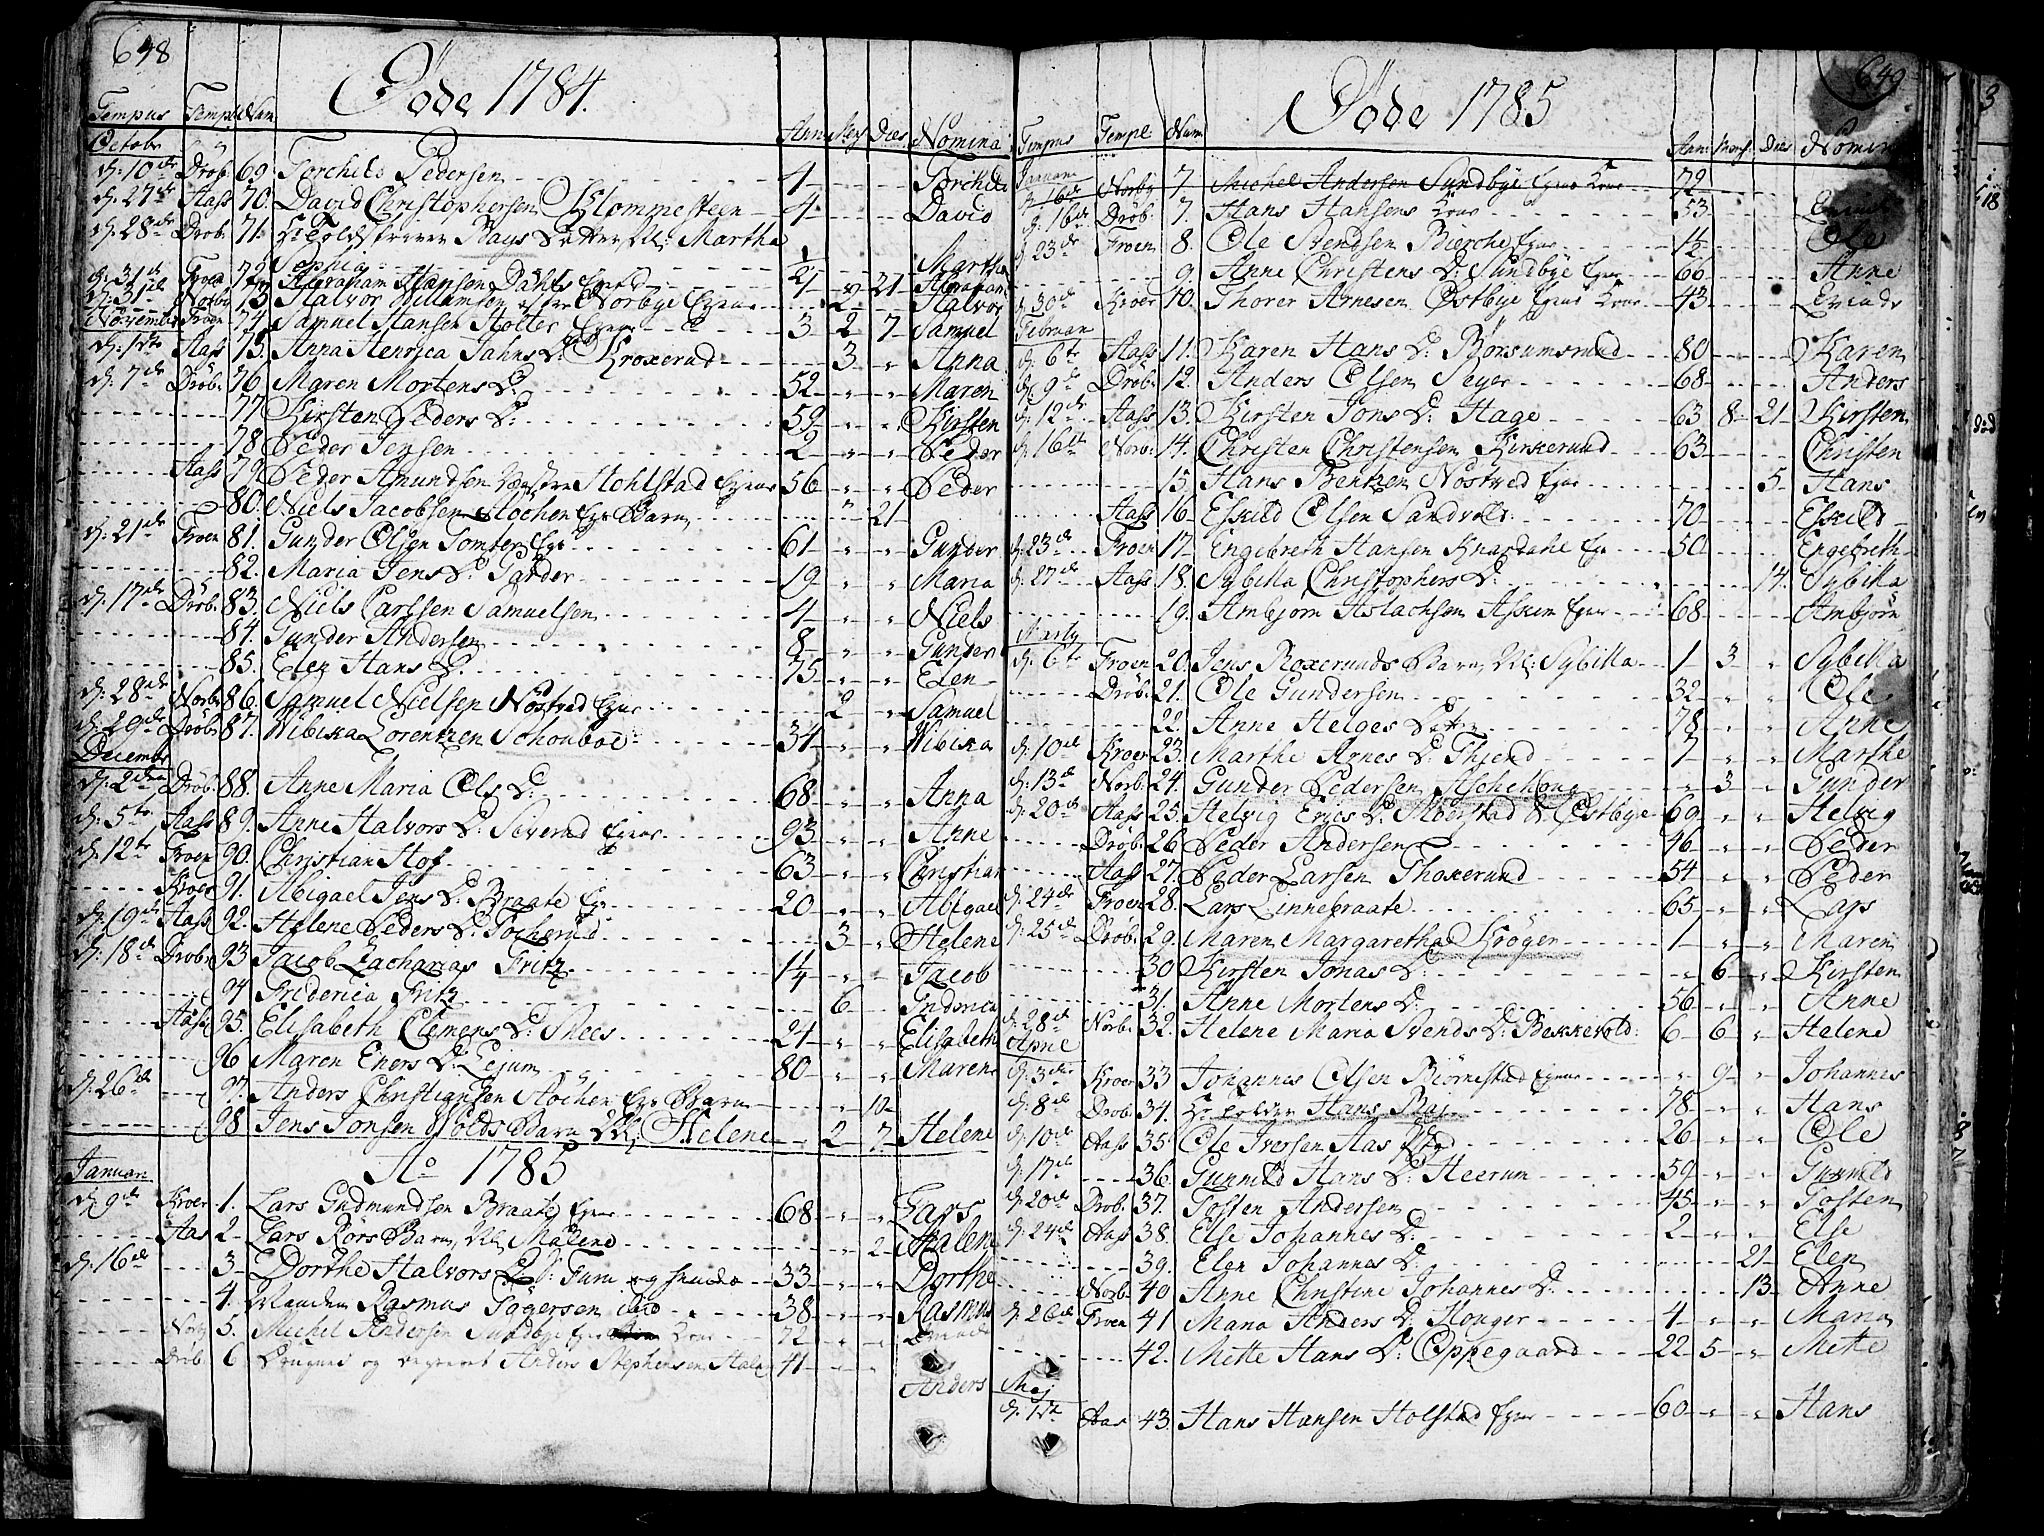 648
Døde 1784.
Tempus Templ Num Anni Dies Nomina
Octobr
d: 10de Drøb. 69. Torchild Pedersen 4 Torchild
d. 27de Aass 70. David Christophersen Klommesteen 4 David
d. 28de Drøb. 71. Martha
Sophia 1/2 Martha
d. 31de Froen 72. Abraham Hansen Dahls 21 Abraham
d. 31de Norby 73. Halvor Norbye Eyer 2 Halvor
November Froen 74. Samuel Hansen Holter Eyer 3 2 7 Samuel
d. 1ste Aass 75. Anna Henrica Jahns D: Kroxerud 3 Anna
d. 7de Drøb. 76. Maren Mortens D: 52 Maren
77 Kirsten Peders D: 59 Kirsten
78 Peder Jensen 2 Peder
Aass 79. Peder Amundsen Holstad Eyer 56 Peder
80. Niels Jacobsen Barn 21
d. 21de Froen 81. Gunder Olsen Tomter Eye 61 Gunder
82. Maria Jens D: Garder 19 Maria
d. 17de Drøb. 83. Niels Carlsen Samuelsen 4 Niels
84. Gunder Andersen 8 Gunder
85. Elen Hans D. 75 Elen
d. 28de Norb 86. Samuel Nielsen Nøstved Eyer 2 Samuel
d. 29de Drøb 87. Wibika Lorentzen Schouboe 34 Wibika
Decembr
d. 2den Drøb. 88. Anne Maria Ols D: 68 Anna
d. 5te Aass 89. Anne Halvors D: Siverud Eyer 93 Anne
d. 12te Froen 90. Christian Hof 63 Christian
Kroer 91. Abigael Jens D: Braate Ey 20 Abigael
d. 19de Aass 92. Helene Peders D: 3 Helene
d. 18de Drøb. 93. Jacob Zacharias Fritz 1/4 Jacob
94 Friderica Fritz 6 Friderica
Aass 95. Elisabeth Clemens D: Skees 24 Elisabeth
96 Maren Eners D: Lejum 80 Maren
d. 26de 97. Anders Christiansen Barn 10
98 Jens Jonsen Barn Nl: Helene 2 7 Helene
Ao 1785
Januari
d. 9de Kroer 1. Lars Gudmundsen Braate Eyer 68 Lars
Aas 2 Lars Rørs Barn Nl: Malene 2 Malene
d. 16de 3 Dorthe Halvors D: 33 Dorthe
4. Manden Rasmus Tøgersen 38 Rasmus
Norby 5. Michel Andersen Sundbye Eyer 72
Drøb 6 og Anders Stephensen 41
Anders
649
Døde 1785
Tempus Templ Num Ann: Dies Nomin
Januarii
d. 16de Norby 7. Michel Andersen Sundbye Eyers 72
d. 16de Drøb. 7. Hans Hansens 53
d. 23de Froen 8. Ole Svendsen Bierche Eyer 1/2 Ole
9. Anne Christens D: Sundbye Eyer 66 Anne
d. 30de Kroer 10. Thorer Arnesen Østbye Eyers 43
Februari
d. 6te Aass 11. Karen Hans D: Børsumsrud 80 Karen
d. 9de Drøb. 12. Anders Olsen Seyer 68 Anders
d. 12te Aass 13. Kirsten Jons D: Hage 63 8 21 Kirsten
d. 16de Norb. 14. Christen Christensen Kirkerud 63 Christen
15. Hans Bentzen Nøstved Eyer 5 Hans
Aass 16. Eskild Olsen Sandvold 70 Eskild
d. 23de Froen 17 Engebreth Hansen Knapdahl Ey 50 Engebreth
d. 27de Aass 18. Sybilla Christophers D: 14. Sybilla
19. Ambjørn Aslachsen Askim Eyer 68 Ambjørn
Marty
d. 6te Froen 20. Jens Roxeruds Barn, Nl: Sybilla 1 3 Sybilla
Drøb. 21. Ole Gundersen 32 Ole
22. Anne Helges D 78 Anne
d. 10de Kroer 23. Marthe Arnes D: 7 Marthe
d. 13de Norb. 24. Gunder Pedersen Aschehoug 3 Gunder
d. 20de Aass 25. Helvig Erics D: Østbye 69 Helvig
Drøb. 26 Peder Andersen 46 Peder
Aass 27. Peder Larsen 54 Peder
d. 24de Froen 28. Lars Linnebraate 65 Lars
d. 25de Drøb. 29. Maren Margaretha Krøger 1 Maren
30 Kirsten Jonas D: 6 Kirsten
31. Anne Mortens D. 56 Anne
d. 28de Norb. 32. Helene Maria Svends D: Bekkevold: 6 6 Helene
April
d. 3die Kroer 33 Johannes Olsen Biørnestad Eyer 9 Johannes
d. 8de Drøb. 34. Hans 78 Hans
d. 10de Aass 35 Ole Iversen Aas 26 Ole
d. 17de 36. Gunnild Hans D: Heerum 59 Gunnild
d. 20de Drøb. 37. Tosten Andersen 45 Tosten
d. 24de Aass 38. Else Johannes D. 2 Else
39. Elen Johannes D. 21 Elen
Norb. 40 Anne Christine Johannes D. 13 Anne
d. 26de Froen 41 Maria Anders D: Houger 4 Maria
42. Mette Hans D: Oppegaard 22 5 Mette
Maj
d. 1ste Aas 43. Hans Hansen Holstad Eyer 60 Hans